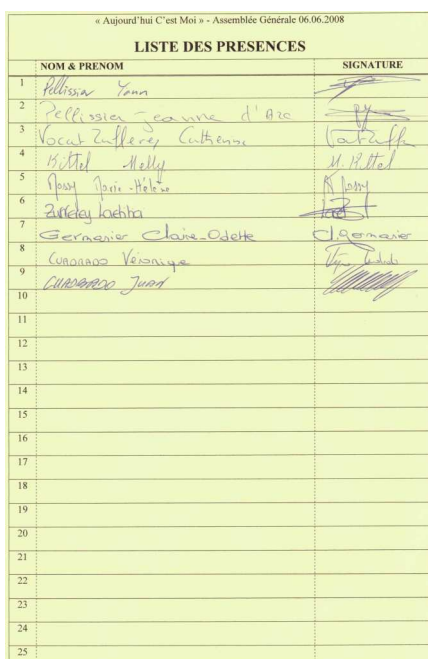 « Aujourd'hui C'est Moi » - Assemblée Générale 06.06.2008
LISTE DES PRESENCES
NOM & PRENOM SIGNATURE
1 Pellissier Yann
2 Pellissier Jeanne d'Arc
3 Vocat Zufferey Cathienne
4 Kittel Melly M. Kittel
5 Massy Marie-Hélène
6 Zufferey Laetitia
7 Germanier Claire-Odette Cl. germanier
8 CUADRADO Véronique
9 CUADRADO Juan
10
11
12
13
14
15
16
17
18
19
20
21
22
23
24
25